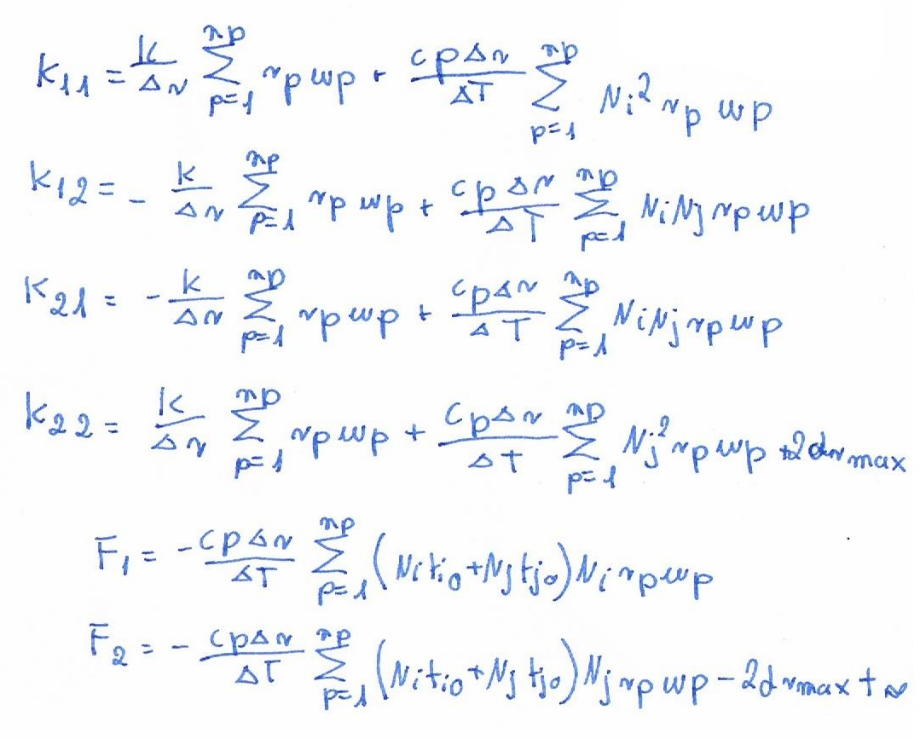 K11 = k/Δr ∑p=1^np rp wp + cpΔr/ΔT ∑p=1^np Ni² rp wp
K12 = - k/Δr ∑p=1^np rp wp + cpΔr/ΔT ∑p=1^np NiNj rp wp
K21 = - k/Δr ∑p=1^np rp wp + cpΔr/ΔT ∑p=1^np NiNj rp wp
K22 = k/Δr ∑p=1^np rp wp + cpΔr/ΔT ∑p=1^np Nj² rp wp + 2αrmax
F1 = - cpΔr/ΔT ∑p=1^np (Ni ti0 + Nj tj0) Ni rp wp
F2 = - cpΔr/ΔT ∑p=1^np (Ni ti0 + Nj tj0) Nj rp wp - 2αrmax t∞